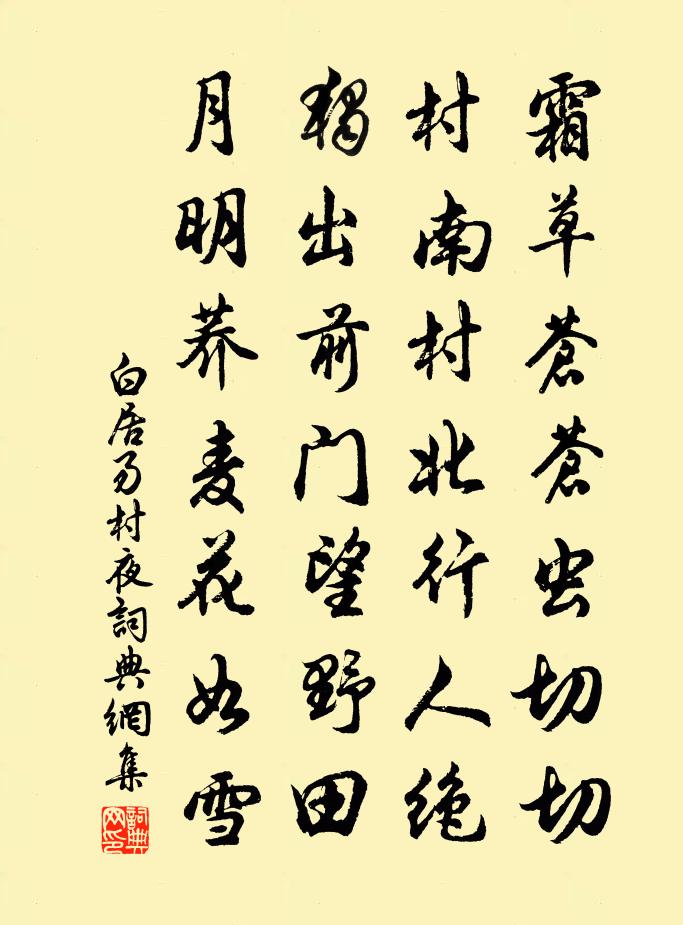 霜草蒼蒼虫切切
村南村北行人绝
獨出前门望野田
月明荞麦花如雪
白居易村夜詞典網集
詞典网印